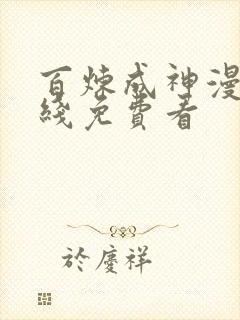 百炼成神漫
綫免費看
於慶祥